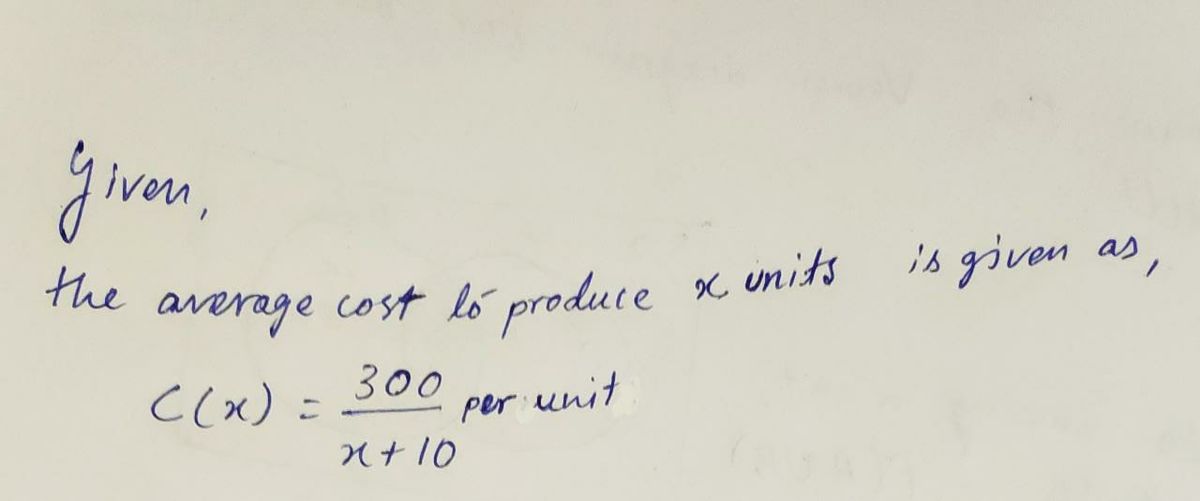 Given,
the average cost to produce x units is given as,
C(x) = 300/x+10 per unit